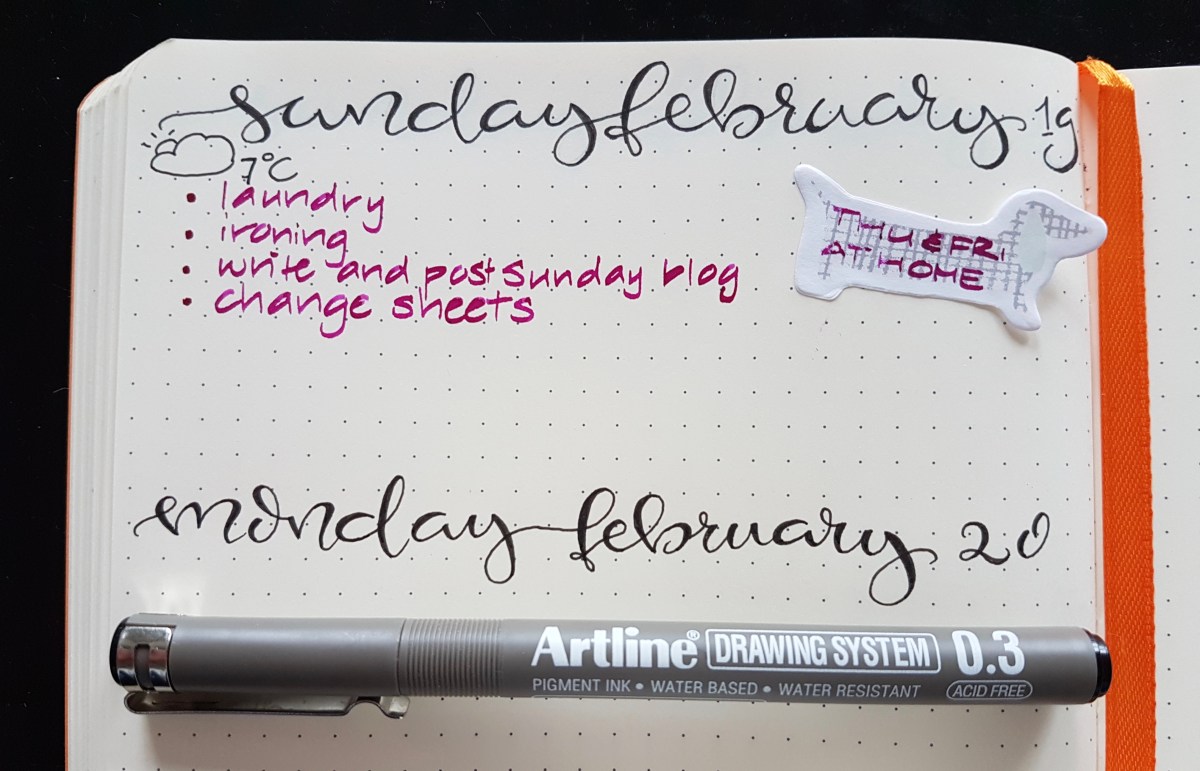 sunday february 19
7°C
• laundry
• ironing
• write and post sunday blog
• change sheets
THU & FRI
AT HOME
monday february 20
Artline® DRAWING SYSTEM 0.3
PIGMENT INK • WATER BASED • WATER RESISTANT ACID FREE